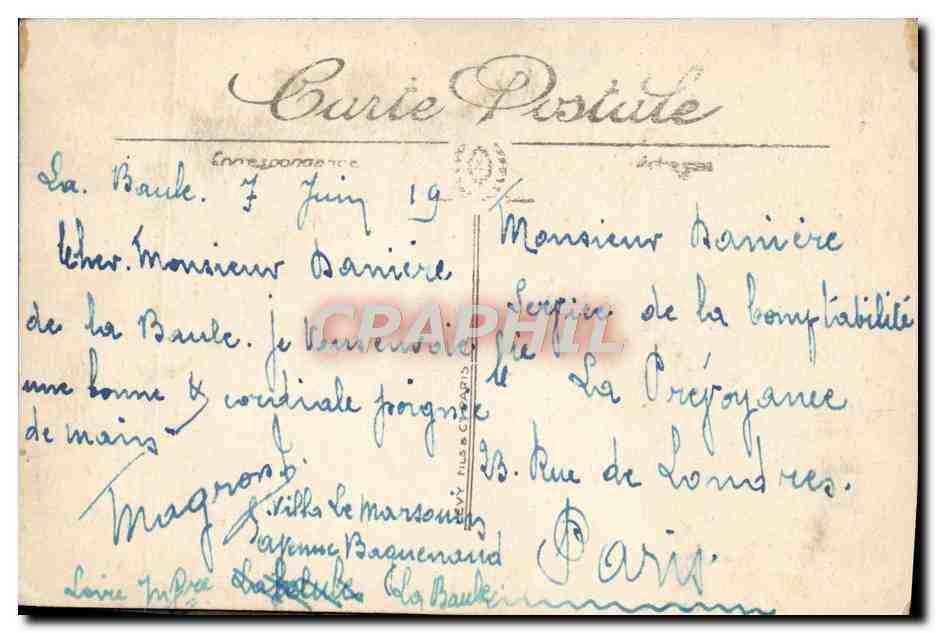 Carte Postale
Correspondance
Adresse
La. Baule. 7 Juin 19
Cher. Monsieur Danière
de la Baule. je vous envoie
une bonne & cordiale poignée
de mains
Magross
Villa Le Marsouin
avenue Baguenaud
Loire Infre La Baule La Baule
Monsieur Danière
Service de la Comptabilité
Cie La Prévoyance
23. Rue de Londres.
Paris.
LEVY FILS & Cie PARIS
CRAPHIL